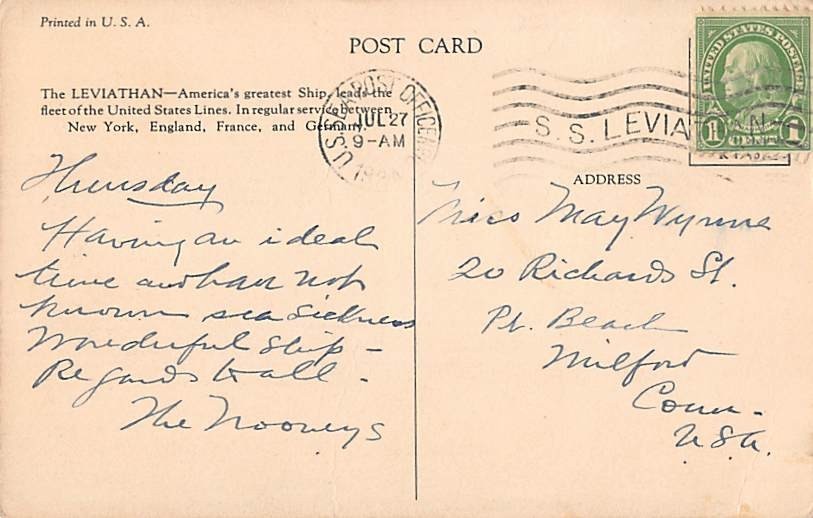 Printed in U. S. A.
POST CARD
The LEVIATHAN—America's greatest Ship, leads the
fleet of the United States Lines. In regular service between
New York, England, France, and Germany.
U.S. SEA POST OFFICE
JUL 27
9-AM
S.S. LEVIATHAN
UNITED STATES POSTAGE
1 1
ADDRESS
Thursday
Having an ideal
time and have not
known sea sickness
Wonderful ship –
Regards to all –
The Mooneys
Miss May Wynne
20 Richards St.
Pt. Beach
Milford
Conn.
USA.